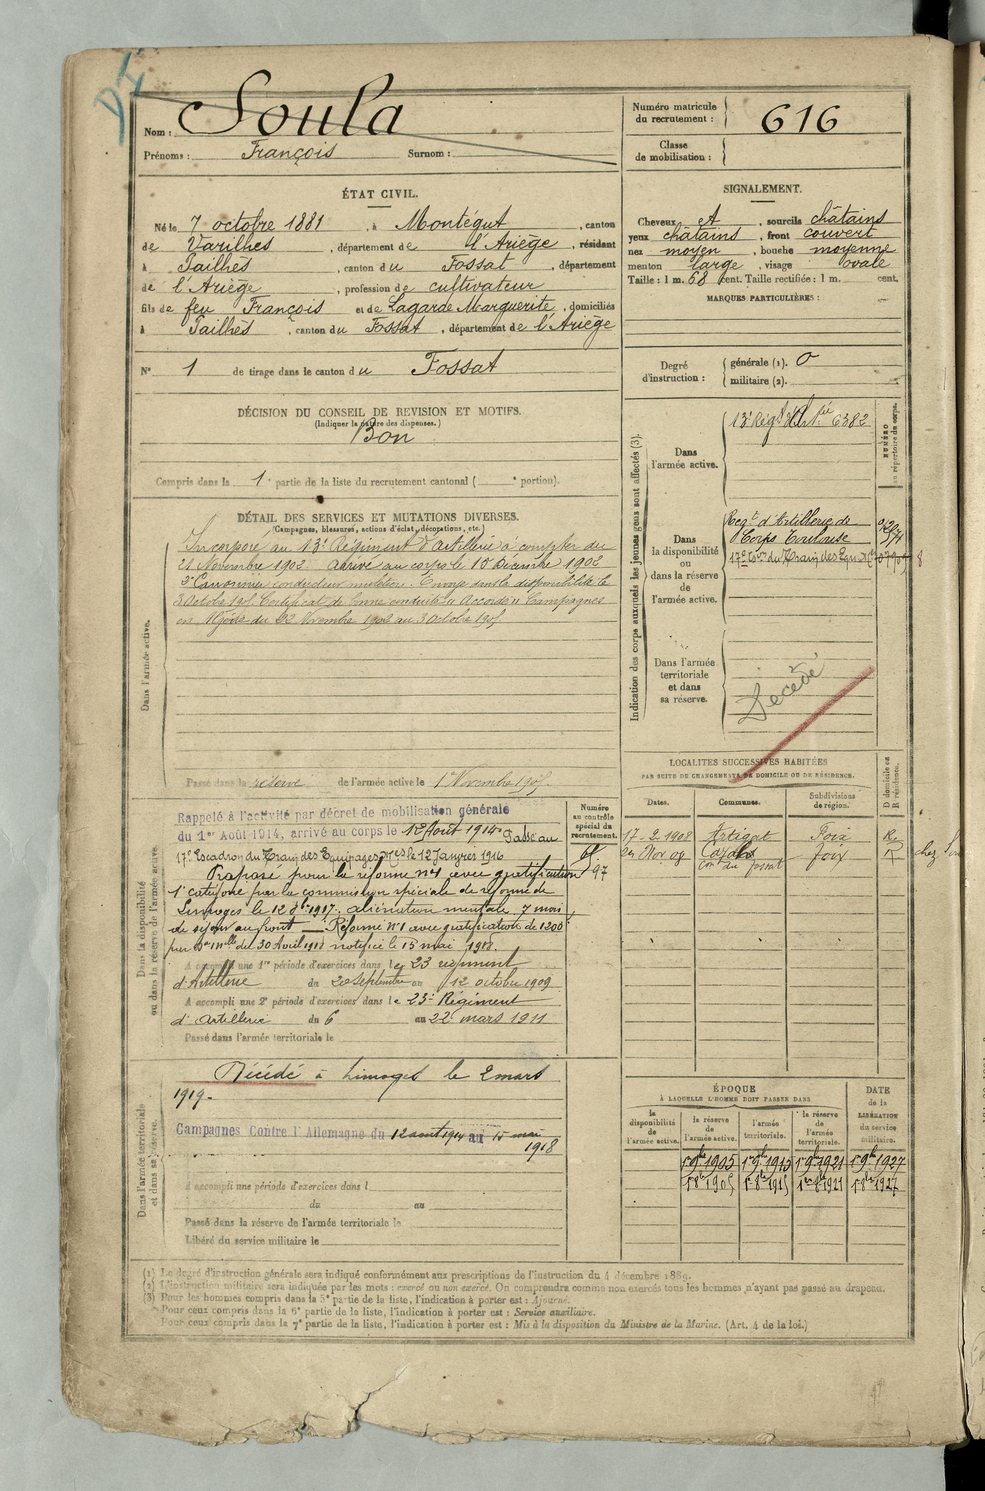 Nom : Soula
Prénoms : François Surnom :
Numéro matricule du recrutement : 616
Classe de mobilisation :
ÉTAT CIVIL.
Né le 7 octobre 1881, à Montégut, canton
de Varilhes, département de l'Ariège, résidant
à Pailhès, canton du Fossat, département
de l'Ariège, profession de cultivateur
fils de feu François et de Lagarde Marguerite, domiciliés
à Pailhès, canton du Fossat, département de l'Ariège
N° 1 de tirage dans le canton du Fossat
SIGNALEMENT.
Cheveux et, sourcils châtains
yeux châtains, front couvert
nez moyen, bouche moyenne
menton large, visage ovale
Taille : 1 m. 68 cent. Taille rectifiée : 1 m. cent.
MARQUES PARTICULIÈRES :
Degré d'instruction : générale (1). 0
militaire (2).
DÉCISION DU CONSEIL DE REVISION ET MOTIFS.
(Indiquer la nature des dispenses.)
Bon
Compris dans la 1e partie de la liste du recrutement cantonal ( e portion).
DÉTAIL DES SERVICES ET MUTATIONS DIVERSES.
(Campagnes, blessures, actions d'éclat, décorations, etc.)
Dans l'armée active.
Incorporé au 13e Régiment d'artillerie à compter du
21 Novembre 1902. Arrivé au corps le 10 Décembre 1902
2e Canonnier conducteur Envoyé dans la disponibilité le
3 Octobre 1905 Certificat de bonne conduite "Accordé" Campagnes
en Algérie du 22 Novembre 1902 au 3 Octobre 1905
Passé dans la réserve de l'armée active le 1er Novembre 1905
Indication des corps auxquels les jeunes gens sont affectés (3).
NUMÉRO au répertoire du corps.
Dans l'armée active.
13e Régt d'Artie 6382
Dans la disponibilité ou dans la réserve de l'armée active.
Regt d'Artillerie de
Corps Toulouse
17e Eson du Train des Equipages
Dans l'armée territoriale et dans sa réserve.
Décédé
LOCALITÉS SUCCESSIVES HABITÉES
PAR SUITE DE CHANGEMENTS DE DOMICILE OU DE RÉSIDENCE.
Dates. Communes. Subdivisions de région. D domicile ou R résidence.
17-2-1908 Artigat Foix R.
Nov 09 Foix R
con du Fossat
Dans la disponibilité ou dans la réserve de l'armée active.
Numéro au contrôle spécial du recrutement.
Rappelé à l'activité par décret de mobilisation générale
du 1er Août 1914, arrivé au corps le 12 Août 1914. Passé au
17e Escadron du Train des Equipages mres le 12 Janvier 1916
Proposé pour la réforme n°1 avec gratification
1e catégorie par la commission spéciale de réforme de
Limoges le 12 8bre 1917. aliénation mentale. 7 mois
de séjour au front — Réformé N°1 avec gratification de 1200f
par don mlle du 30 Avril 1918 notifiée le 15 mai 1918.
A accompli une 1re période d'exercices dans le 23e régiment
d'Artillerie du 20 septembre au 12 octobre 1909
A accompli une 2e période d'exercices dans le 23e Régiment
d'artillerie du 6 au 22 mars 1911
Passé dans l'armée territoriale le
Dans l'armée territoriale et dans sa réserve.
Décédé à Limoges le 2 mars
1919.
Campagnes Contre l'Allemagne du 12 août 1914 au 15 mai
1918
A accompli une période d'exercices dans l
du au
Passé dans la réserve de l'armée territoriale le
Libéré du service militaire le
ÉPOQUE
À LAQUELLE L'HOMME DOIT PASSER DANS
la disponibilité de l'armée active. la réserve de l'armée active. l'armée territoriale. la réserve de l'armée territoriale.
DATE de la LIBÉRATION du service militaire.
1er 9bre 1905 1er 9bre 1915 1er 9bre 1921 1er 9bre 1927
1er 8bre 1905 1er 8bre 1915 1er 8bre 1921 1er 8bre 1927
(1) Le degré d'instruction générale sera indiqué conformément aux prescriptions de l'instruction du 4 décembre 1889.
(2) L'instruction militaire sera indiquée par les mots : exercé ou non exercé. On comprendra comme non exercés tous les hommes n'ayant pas passé au drapeau.
(3) Pour les hommes compris dans la 5e partie de la liste, l'indication à porter est : Ajourné.
Pour ceux compris dans la 6e partie de la liste, l'indication à porter est : Service auxiliaire.
Pour ceux compris dans la 7e partie de la liste, l'indication à porter est : Mis à la disposition du Ministre de la Marine. (Art. 4 de la loi.)